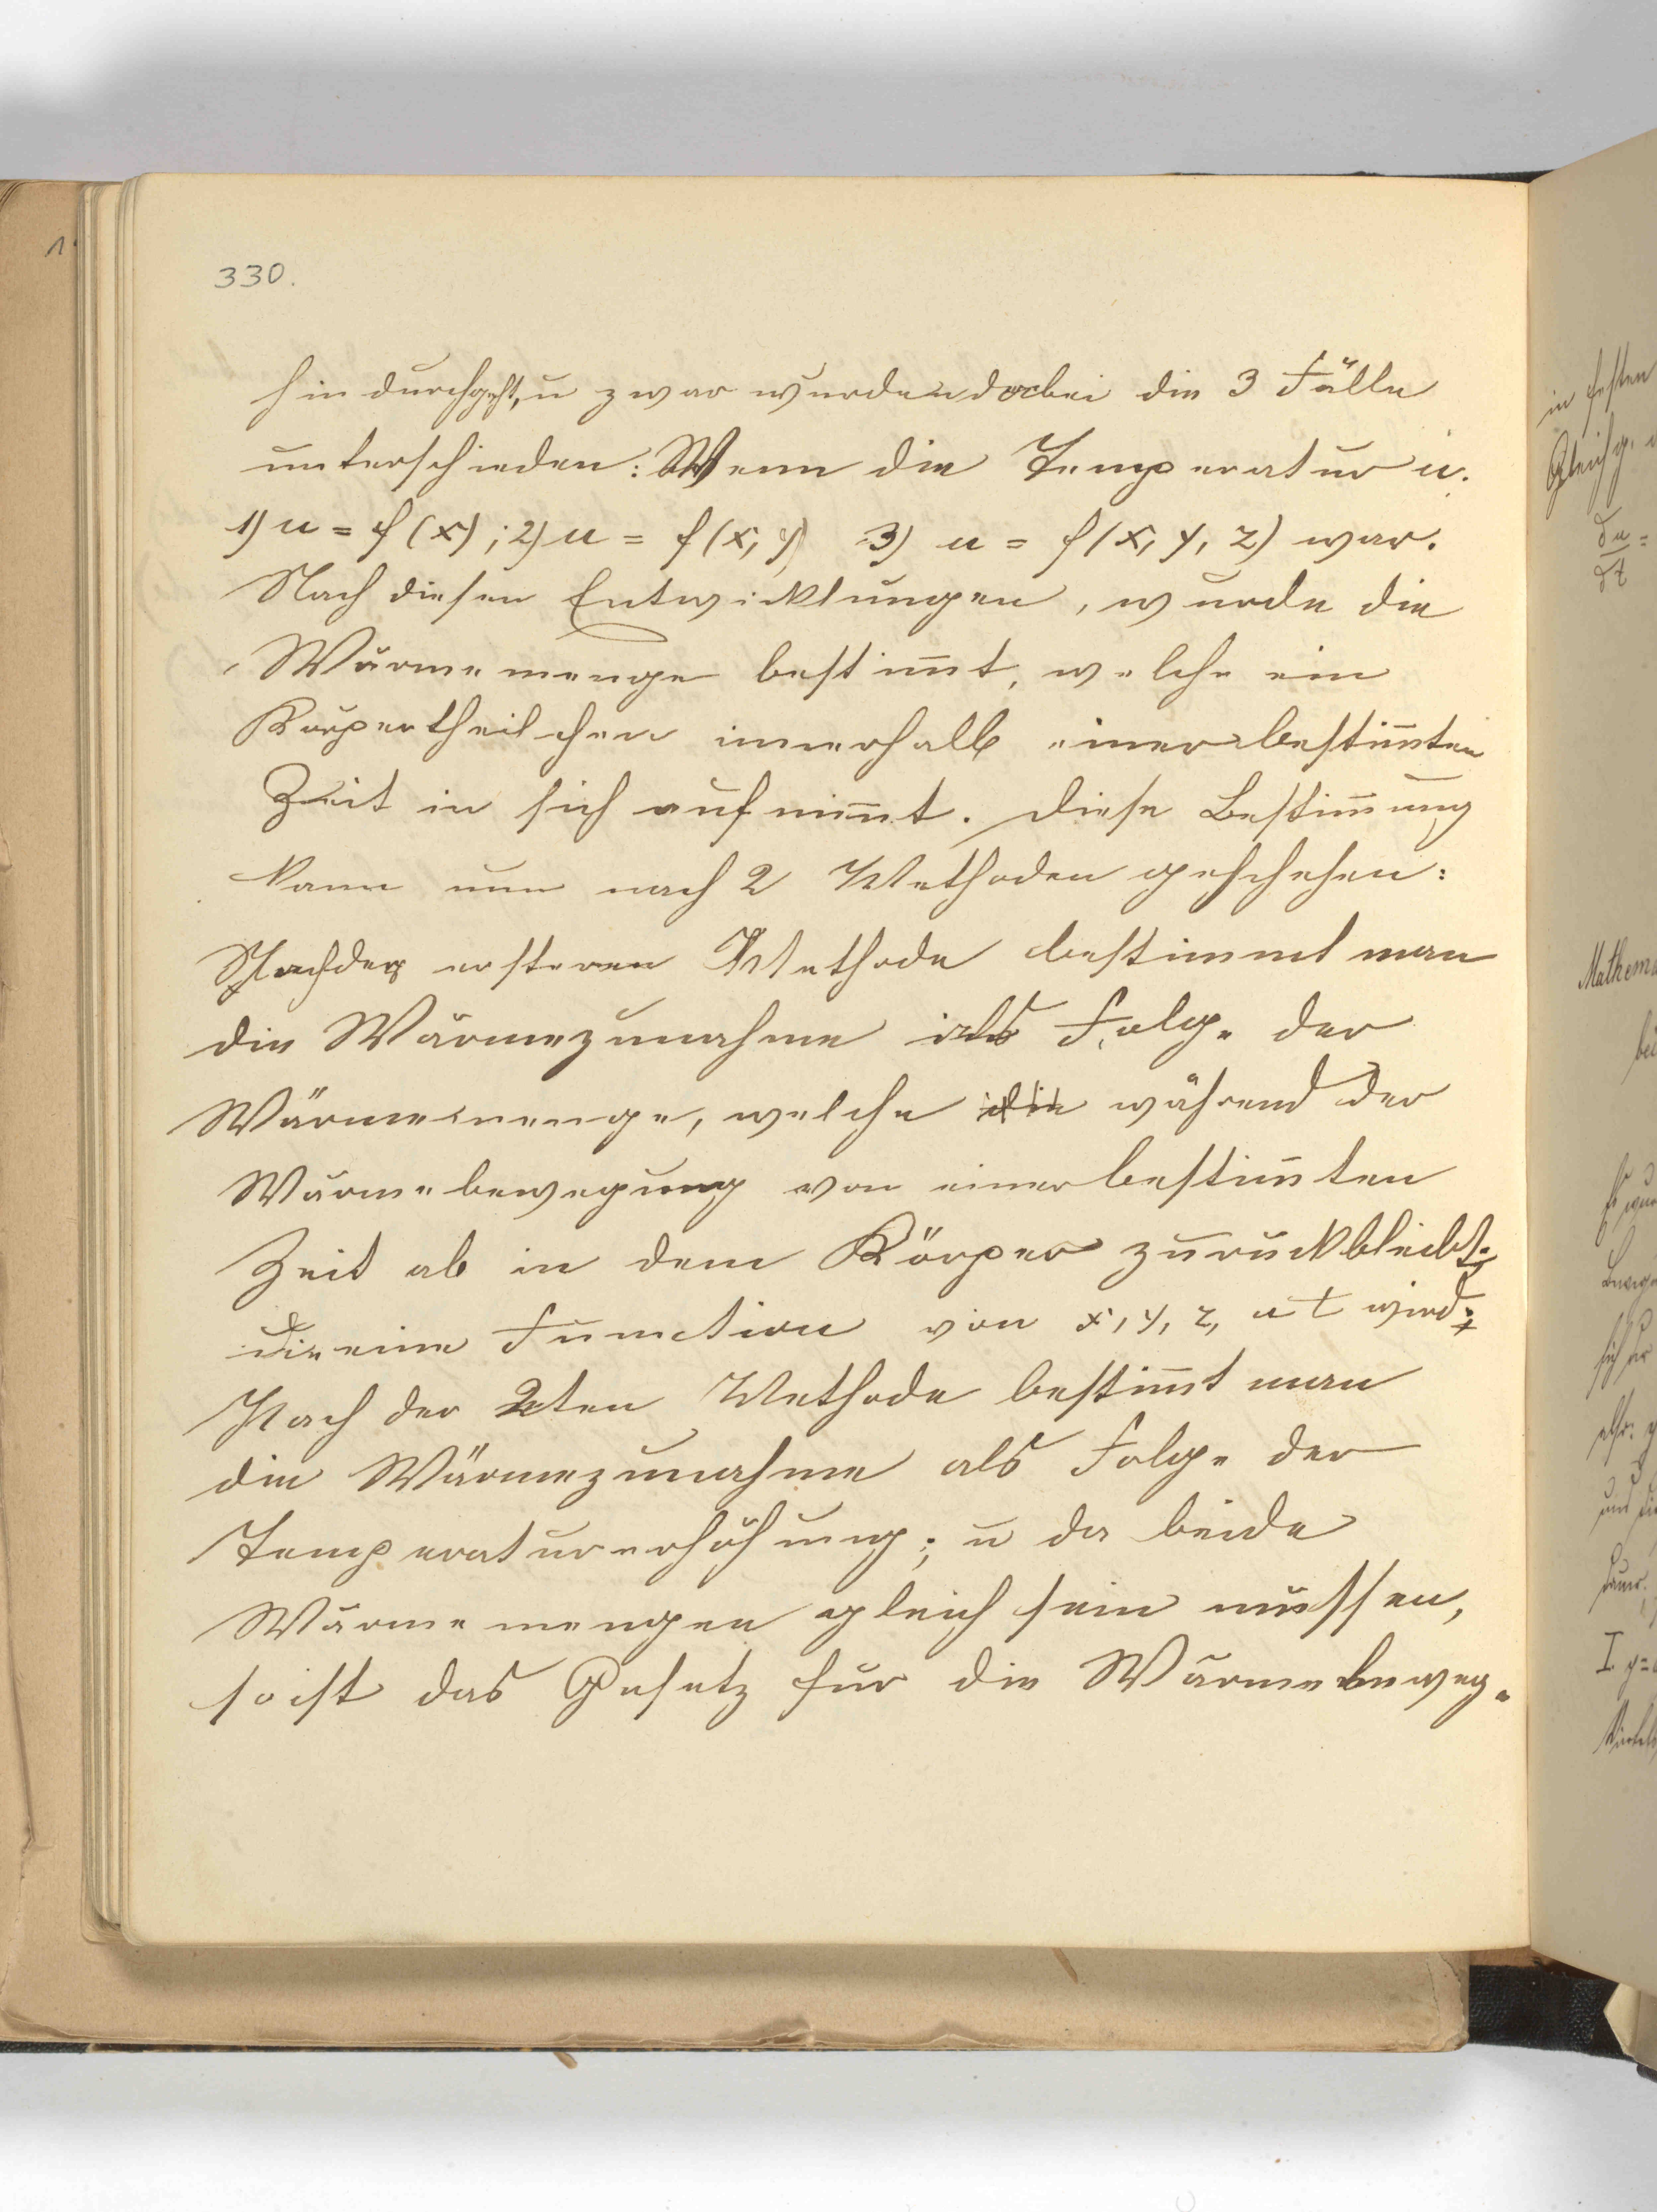 330.
hindurchgeht, u zwar wurden dabei die 3 Fälle
unterschieden: Wenn die Temperatur u.
1) u = f(x); 2) u = f(x, y) 3) u = f(x, y, z) war.
Nach diesen Entwicklungen, wurde die
Wärmemenge bestim̄t, welche ein
Körpertheilchen innerhalb einer bestim̄ten
Zeit in sich aufnim̄t. Diese Bestim̄ung
kann nun nach 2 Methoden geschehen:
Nach der ersteren Methode bestimmt man
die Wärmezunahme als Folge der
Wärmemenge, welche die während der
Wärmebewegung von einer bestim̄ten
Zeit ab in dem Körper zurückbleibt;
die eine Function von x, y, z, u t wird;
Nach der 2ten Methode bestim̄t man
die Wärmezunahme als Folge der
Temperaturerhöhung; u da beide
Wärmemengen gleich sein müssen,
so ist das Gesetz für die Wärmebeweg-
in festen
Gleichg.
du
dt
=
Mathema